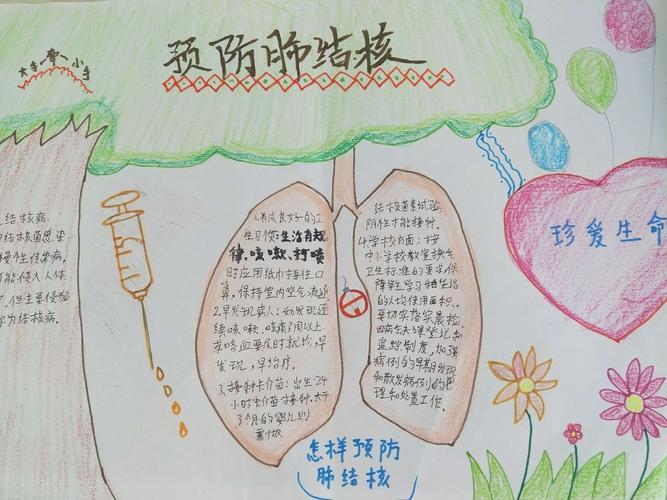 预防肺结核
大手牵小手
结核病
结核菌感染
慢性传染病,
可能侵入人体
,但主要侵犯
为结核病。
1.养成良好的卫
生习惯:生活有规
律,咳嗽、打喷
时应用纸巾捂住口
鼻,保持室内空气流通
2.早发现病人:如发现连
续咳嗽,咳痰了周以上
或咯血要及时就诊,早
发现,早治疗。
3.接种卡介苗:出生24
小时卡介苗接种,大于
3个月的婴儿则
结核菌素试验
阴性才能接种。
4.学校方面:按
中小学校教室换气
卫生标准的要求,保
障学生学习和生活
的人均使用面积。
要切实落实晨检
因病缺课登记和
追踪制度,加强
病例的早期发现
和散发病例的管
理和处置工作。
怎样预防
肺结核
珍爱生命